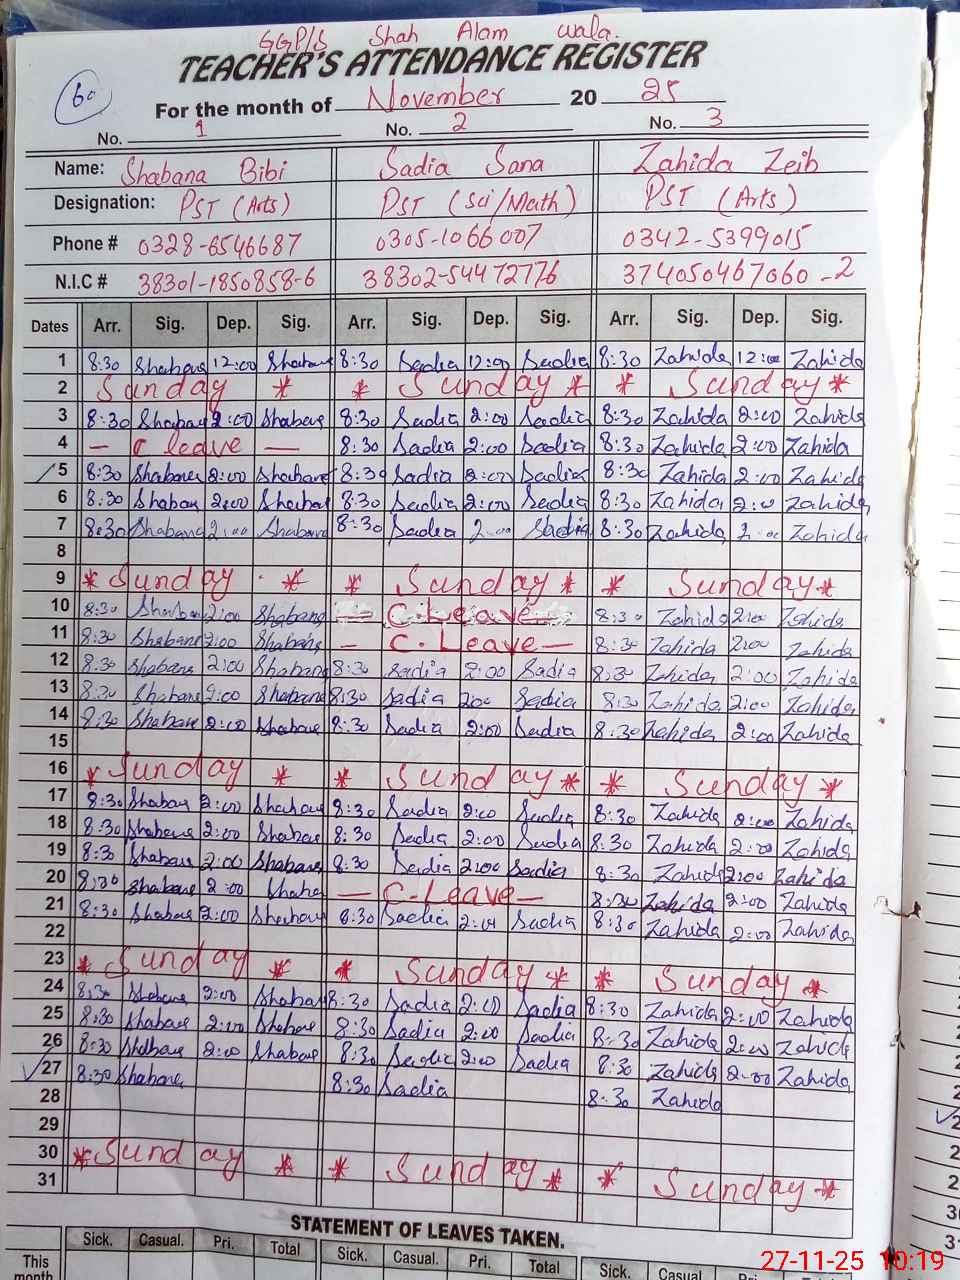 GGP/S Shah Alam wala.
TEACHER'S ATTENDANCE REGISTER
60
For the month of November 20 25
No. 1 No. 2 No. 3
Name: Shabana Bibi Sadia Sana Zahida Zeib
Designation: PST (Arts) PST (Sci/Math) PST (Arts)
Phone # 0328-6546687 0305-1066007 0342-5399015
N.I.C # 38301-1850858-6 38302-54472776 374050467060-2
Dates Arr. Sig. Dep. Sig. Arr. Sig. Dep. Sig. Arr. Sig. Dep. Sig.
1 8:30 Shabana 12:00 Shabana 8:30 Sadia 12:00 Sadia 8:30 Zahida 12:00 Zahida
2 Sunday * * Sunday * * Sunday *
3 8:30 Shabana 2:00 Shabana 8:30 Sadia 2:00 Sadia 8:30 Zahida 2:00 Zahida
4 — C leave — 8:30 Sadia 2:00 Sadia 8:30 Zahida 2:00 Zahida
5 8:30 Shabana 2:00 Shabana 8:30 Sadia 2:00 Sadia 8:30 Zahida 2:00 Zahida
6 8:30 Shabana 2:00 Shabana 8:30 Sadia 2:00 Sadia 8:30 Zahida 2:00 Zahida
7 8:30 Shabana 2:00 Shabana 8:30 Sadia 2:00 Sadia 8:30 Zahida 2:00 Zahida
8
9 * Sunday * * Sunday * * Sunday *
10 8:30 Shabana 2:00 Shabana — C. Leave — 8:30 Zahida 2:00 Zahida
11 8:30 Shabana 2:00 Shabana — C. Leave — 8:30 Zahida 2:00 Zahida
12 8:30 Shabana 2:00 Shabana 8:30 Sadia 2:00 Sadia 8:30 Zahida 2:00 Zahida
13 8:30 Shabana 2:00 Shabana 8:30 Sadia 2:00 Sadia 8:30 Zahida 2:00 Zahida
14 8:30 Shabana 2:00 Shabana 8:30 Sadia 2:00 Sadia 8:30 Zahida 2:00 Zahida
15
16 * Sunday * * Sunday * * Sunday *
17 8:30 Shabana 2:00 Shabana 8:30 Sadia 2:00 Sadia 8:30 Zahida 2:00 Zahida
18 8:30 Shabana 2:00 Shabana 8:30 Sadia 2:00 Sadia 8:30 Zahida 2:00 Zahida
19 8:30 Shabana 2:00 Shabana 8:30 Sadia 2:00 Sadia 8:30 Zahida 2:00 Zahida
20 8:30 Shabana 2:00 Shaba — C. Leave — 8:30 Zahida 2:00 Zahida
21 8:30 Shabana 2:00 Shabana 8:30 Sadia 2:00 Sadia 8:30 Zahida 2:00 Zahida
22
23 * Sunday * * Sunday * * Sunday *
24 8:30 Shabana 2:00 Shabana 8:30 Sadia 2:00 Sadia 8:30 Zahida 2:00 Zahida
25 8:30 Shabana 2:00 Shabana 8:30 Sadia 2:00 Sadia 8:30 Zahida 2:00 Zahida
26 8:30 Shabana 2:00 Shabana 8:30 Sadia 2:00 Sadia 8:30 Zahida 2:00 Zahida
27 8:30 Shabana 8:30 Sadia 8:30 Zahida
28
29
30 * Sunday * * Sunday * * Sunday *
31
STATEMENT OF LEAVES TAKEN.
Sick. Casual. Pri. Total Sick. Casual. Pri. Total Sick. Casual Pri. Total
This month
27-11-25 10:19